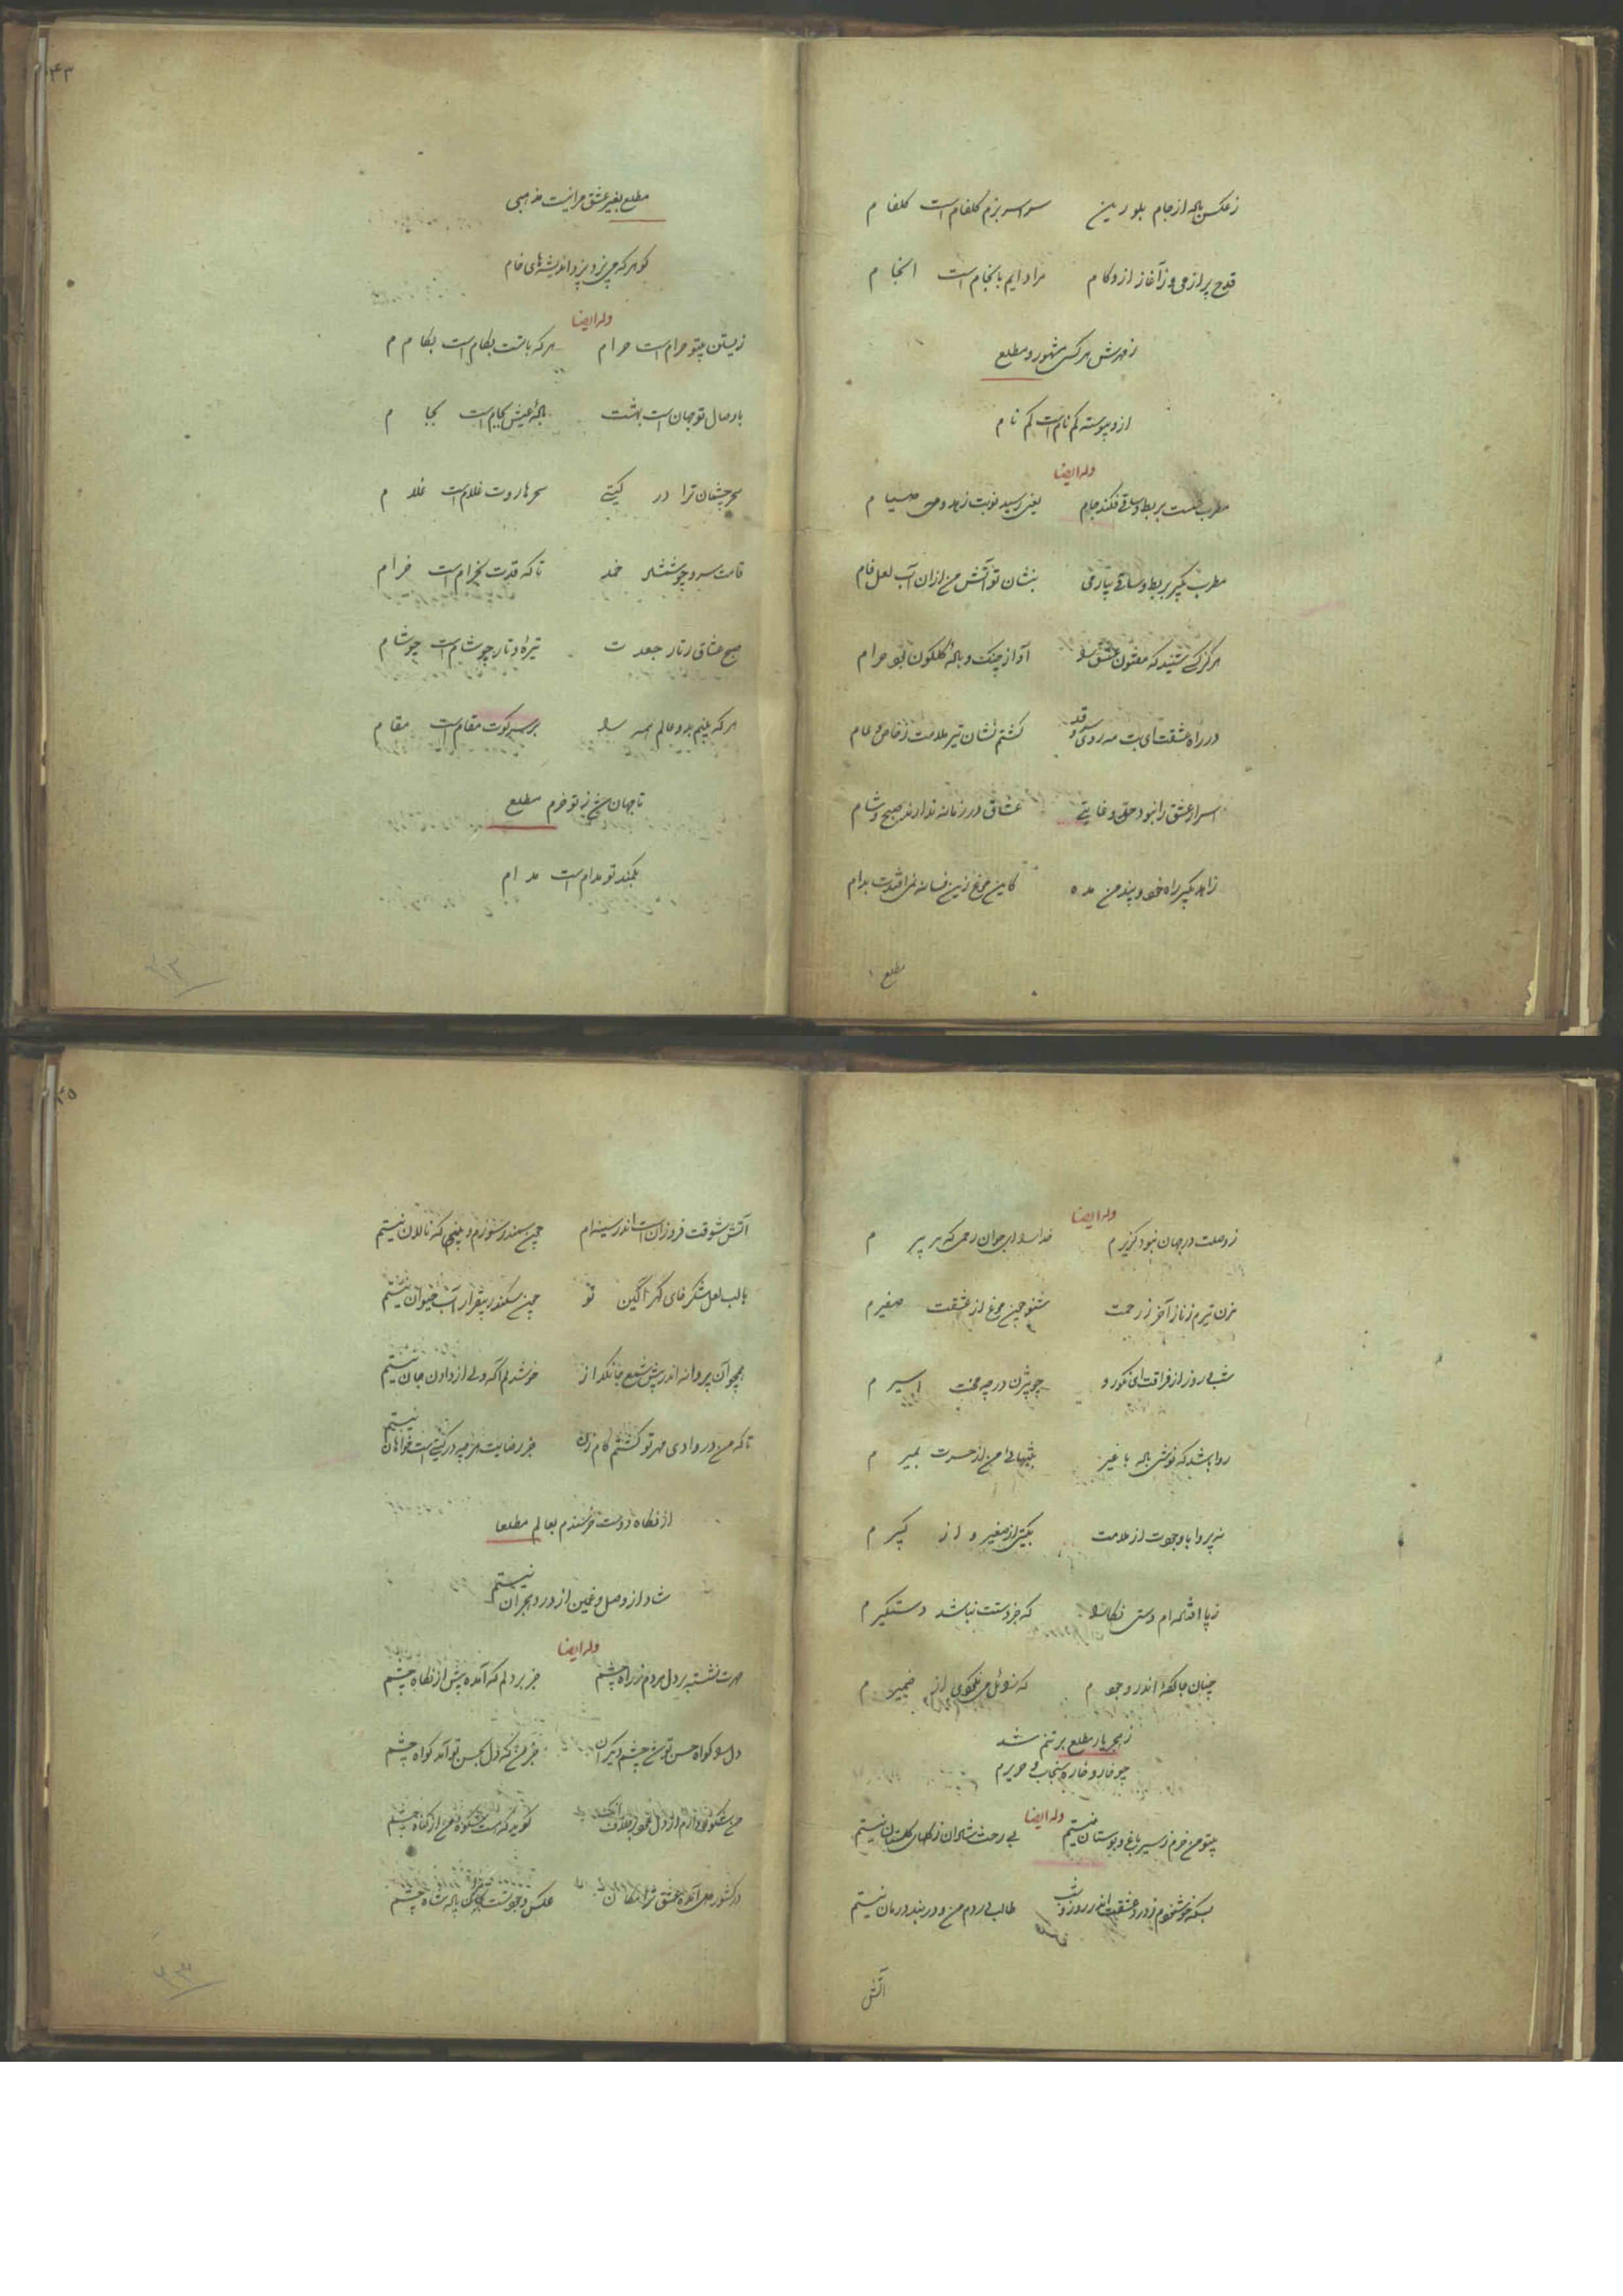 ز عکس باده از جام بلورین سراسر بزم گلفام است گلفام
قدح پر از می و ز آغاز از وکام مرا دایم بانجام است انجام
ز مهرش هر کس مشهور و مطلع
ازو پیوسته گم نام است گم نام
وله ایضا
مطرب شکست بربط و ساقی فکند جام یعنی رسید نوبت زهد و صیام
مطرب بگیر بربط و ساقی بیار می بنشان تو آتش من از ان آب لعل فام
هرگز کسی شنید که مفتون عشق را آواز چنگ و باده گلگون بود حرام
در راه عشقت ای بت مه روی سرو قد گشتم نشان تیر ملامت ز خاص و عام
اسرار عشق را نبود حد و غایتی عشاق در زمانه ندارند صبح و شام
زاهد بگیر راه خود و پند من مده کاین مرغ زین فسانه نمی افتدت بدام
مطلع
۴۳
مطلع بغیر عشق مرا نیست مذهبی
گو هر که می پزد بپزد اندیشه های خام
وله ایضا
زیستن بیتو حرام است حرام هر که باتست بکام است بکام
با وصال تو جهان است بهشت باده عیش بجام است بجام
سحر چشمان ترا در گیتی سحر هاروت غلام است غلام
قامت سرو چو شمشاد خمد تا که قدت بخرام است خرام
صبح عشاق ز تار جعدت تیره و تار چو شام است چو شام
هر که بینم بدو عالم همه را بر سر کوت مقام است مقام
تا جهان شد ز تو خرم مطلع
بکمند تو مدام است مدام
۴۳
وله ایضا
ز وصلت در جهان نبود گزیرم خدا را ای جوان رحمی که هر پیرم
مزن تیرم ز ناز آخر ز رحمت شنو چون مرغ از عشقت صفیرم
شب و روز از فراقت ای نکو رو چو بیژن در چه محنت اسیرم
روا باشد که نوشی باده با غیر بشبها من از حسرت بمیرم
نه پروا با وجودت از ملامت بگیتی از صغیر و از کبیرم
ز پا افتاده ام دستی نگارا که جز دستت نباشد دستگیرم
چنان جا کرده اندر وجودم که نزدل می نگوی از ضمیرم
ز هجر یار مطلع بر تنم شد
چو خار و خاره سنجاب و حریرم
وله ایضا
بیتو من خرم ز سیر باغ و بوستان نیستم بی رخت شادان ز گلهای گلستان نیستم
بسکه خوشنودم ز درد عشقت اندر روز و شب طالب دردم من و در بند درمان نیستم
آتش
۴۵
آتش شوقت فروزان است اندر سینه ام چون سمندر سوزم و بینی که نالان نیستم
با لب لعل شکر خای گهر آگین تو چون سکندر بیقرار آب حیوان نیستم
همچو آن پروانه اندر پیش شمع جانگداز خوشدلم آگه ولی از دادن جان نیستم
تا که من در وادی مهر تو گشتم گام زن جز رضایت هر چه در گیتی است خواهان نیستم
از نگاه دوست خرسندم بعالم مطلعا
شاد از وصل و غمین از درد هجران نیستم
وله ایضا
مهرت نشسته بر دل مردم ز راه چشم جز بر دلم که آمده پیش از نگاه چشم
دل را گواه حسن تو شد چشم دیگران جز من که دل بحسن تو آمد گواه چشم
من شکوه دارم از دل گوید که هست شکوه من از گناه چشم
در کشور دل آمده عشق ترا مکان عکس وجود تست پادشاه چشم
۴۴